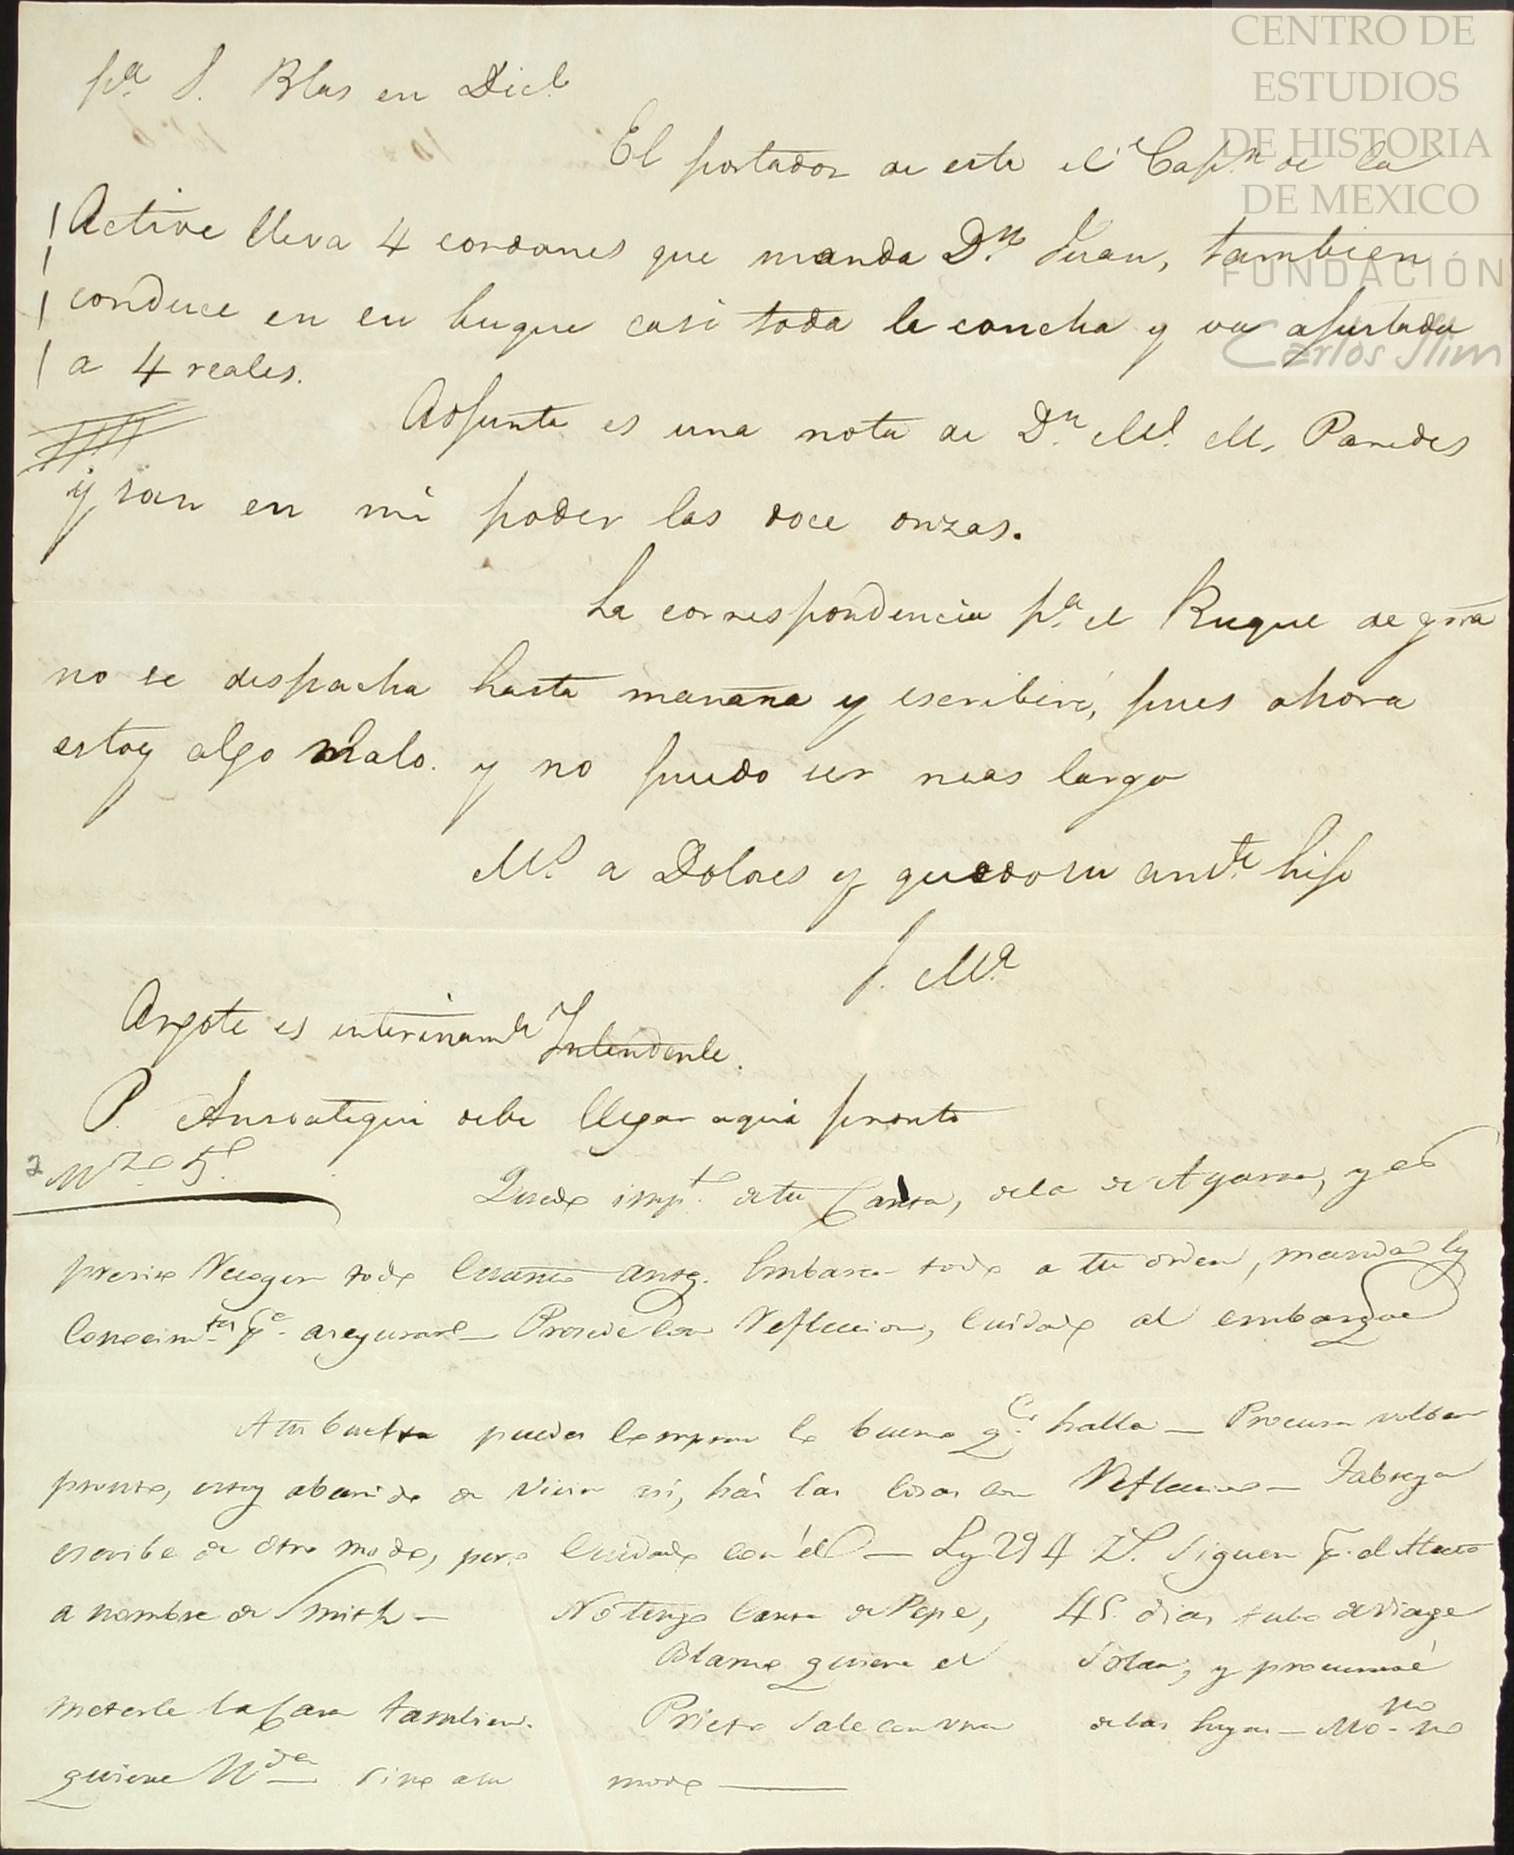 CENTRO DE
ESTUDIOS
DE HISTORIA
DE MEXICO
FUNDACIÓN
Carlos Slim
pa. S. Blas en Dice.
El portador de este el Capn. de la
Active lleva 4 cordones que manda Dn. Juan, tambien
conduce en su buque casi toda la concha y va ajustada
a 4 reales.
Adjunta es una nota de Dn. Ml. M. Paredes
y van en mi poder las doce onzas.
La correspondencia pa. el Buque de grra
no se despacha hasta mañana y escribiré, pues ahora
estoy algo malo. y no puedo ser mas largo
Ms. a Dolores y quedo su amte. hijo
J. Ma.
Argote es interinamte Intendente.
P. Ansoategui debe llegar aqui pronto
2 Mzo 5.
Quedo impto. de tu Carta, dela de Agarra, y es
preciso Recoger todo Cuanto antes. Embarca todo a tu orden, manda los
Conocimtos. pa. asegurar — Procede con Refleccion, Cuidado al embarque
A tu buelta puedes Comprar lo bueno qe. halla — Procura volber
pronto, estoy aburido de Vivir así, haz las Cosas con Refleccion — Fabrega
escribe de otro modo, pero Cuidado con él — Los 294 Ps. Siguen
a nombre de Smith — No tengo Carta de Pepe, 45. dias tubo de viage
Blanco quiere el Solar, y procuraré
meterle la Casa tambien. Prieto Sale con una delas hijas — Mo. no no
quiere Nda — Sino a su modo —